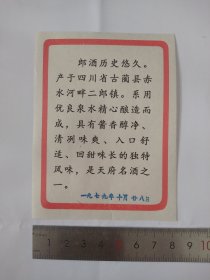 郎酒历史悠久。
产于四川省古蔺县赤
水河畔二郎镇。系用
优良泉水精心酿造而
成，具有酱香醇净、
清冽味爽、入口舒
适、回甜味长的独特
风味，是天府名酒之
一。
一九七九年十月廿八日
1 2 3 4 5 6 7 8 9 10